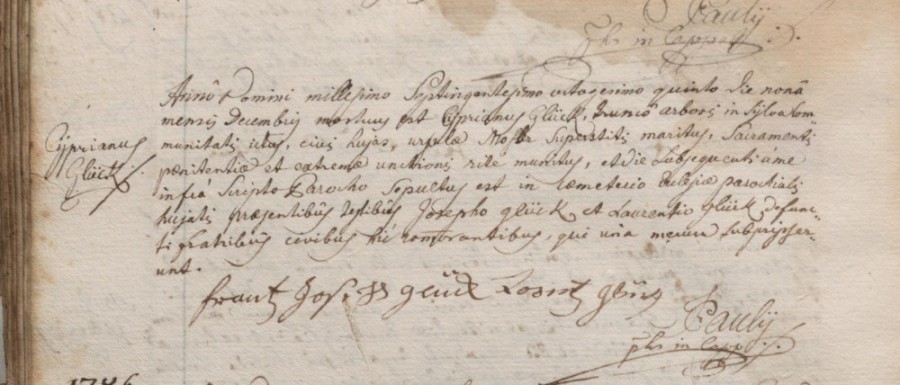 Pauly
phs in Cappel
Anno Domini millesimo Septingentesimo octogesimo quinto die nona
mensis Decembris mortuus est Cyprianus Glück, trunco arboris in Sylva Com
munitatis ictus, civis hujas, ursulæ superstitis maritus, Sacramentis
Cyprianus
Glück
pœnitentiæ et extremæ unctionis rite munitus, et die subsequenti a me
infra Scripto Parocho Sepultus est in cœmeterio Eclesiæ parochialis
hujatis præsentibus testibus Josepho glück et Laurentio glück defunc-
ti fratribus civibus hic comorantibus, qui una mecum subscripser-
unt.
frantz Joseph glück Lorentz glück
Pauly
phs in Capp.
1786